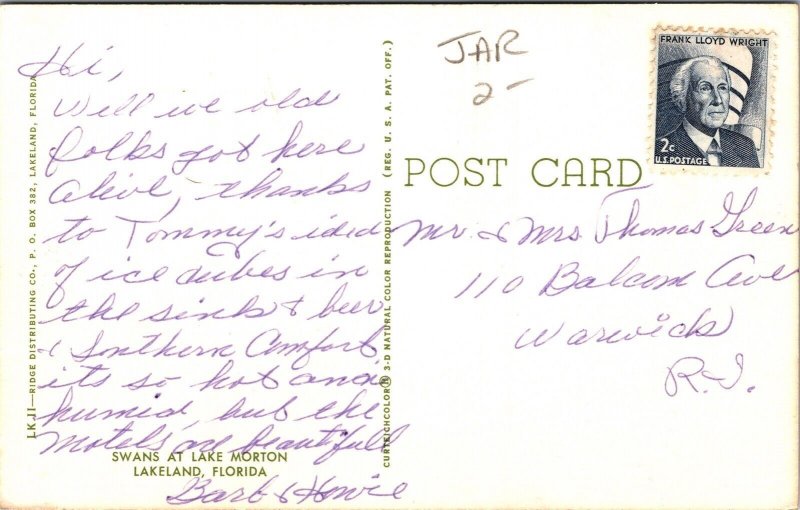 Hi,
Well we old
folks got here
alive, thanks
to Tommy's idea
of ice cubes in
the sink & beer
& Southern Comfort
its so hot and
humid, but the
motels are beautifull
Barb & Howie
SWANS AT LAKE MORTON
LAKELAND, FLORIDA
LK.11—RIDGE DISTRIBUTING CO., P. O. BOX 382, LAKELAND, FLORIDA
CURTEICHCOLOR® 3-D NATURAL COLOR REPRODUCTION (REG. U. S. A. PAT. OFF.)
JAR
2-
POST CARD
FRANK LLOYD WRIGHT
2c
U.S. POSTAGE
Mr. & Mrs Thomas Green
110 Balcom Ave
Warwick
R.I.